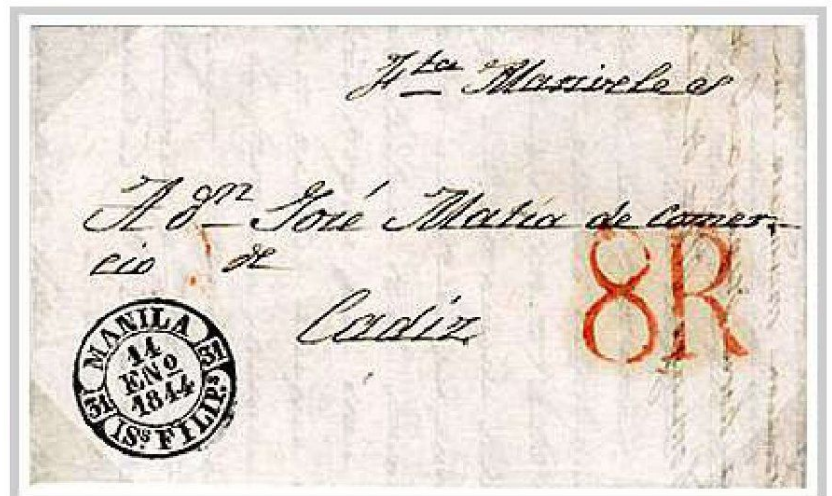 Fta Mariveles
A Dn José Matía de Comer-
cio de
Cadiz
8R
MANILA
31 31
14
ENº
1844
ISs FILIPs